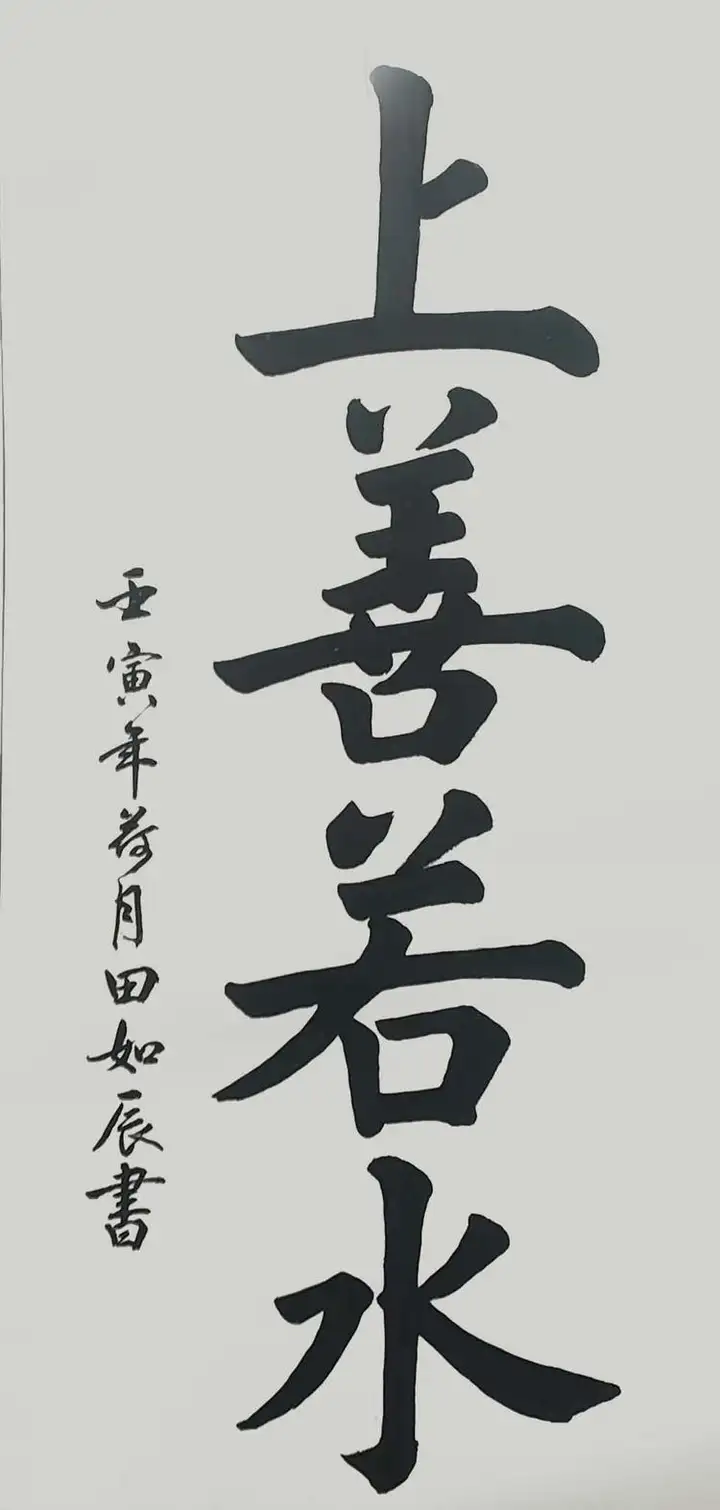 上善若水
壬寅年荷月田如辰書